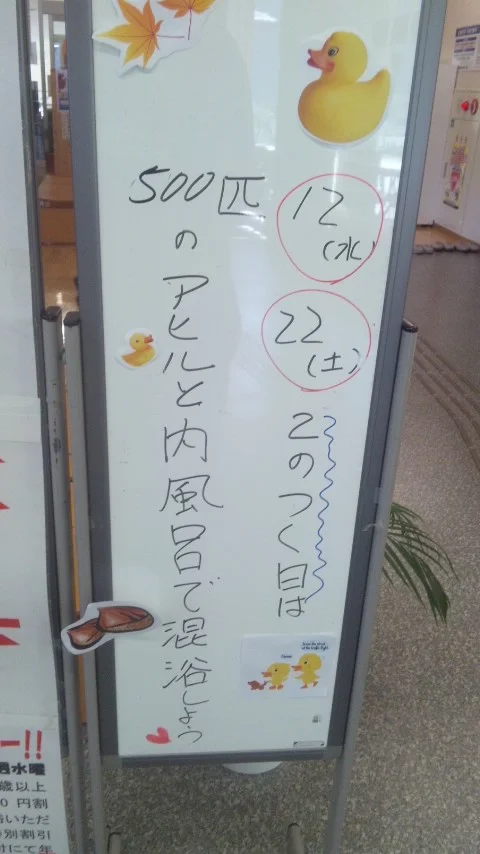 12
(水)
22
(土)
2のつく日は
500匹のアヒルと内風呂で混浴しよう
ー!!
週水曜
歳以上
0円割
いただ
別割引